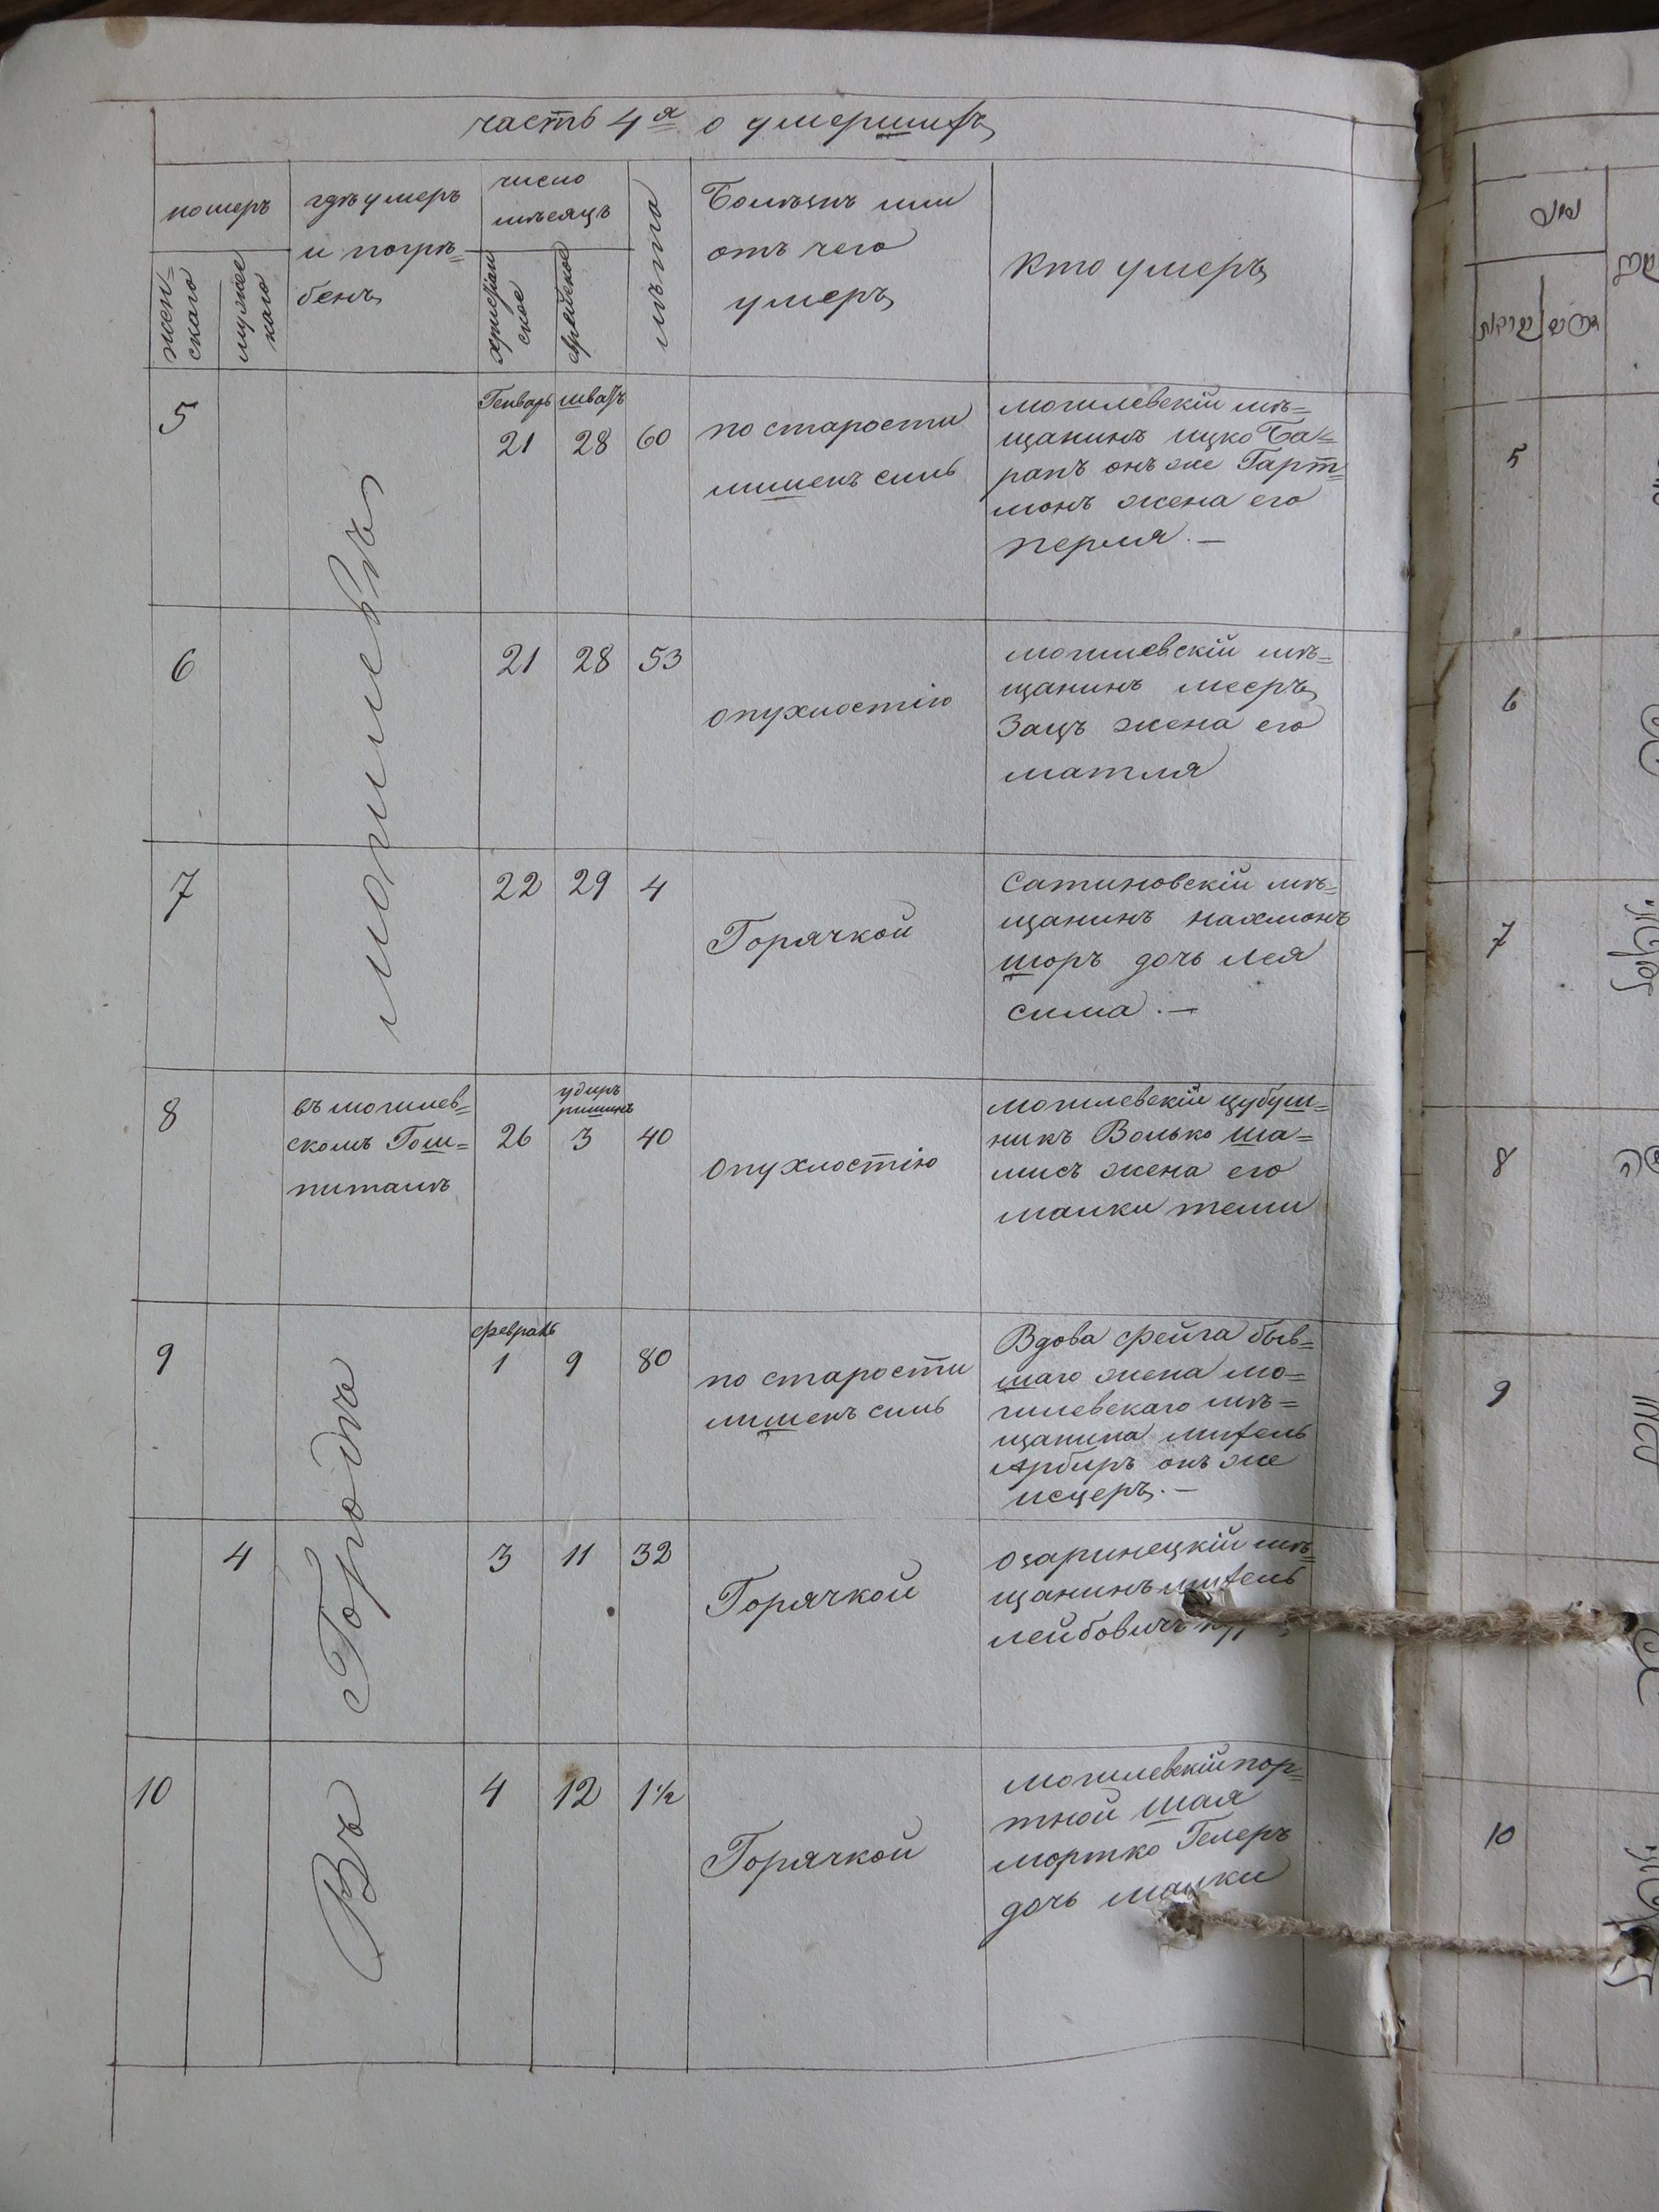 часть 4я о умершихъ
номеръ
жен=
скаго
мужес
каго
гдѣ умеръ
и погрѣ=
бенъ
число
мѣсяцъ
христіан
ское
еврейское
лѣта
Болѣзнь или
отъ чего
умеръ
кто умеръ
Въ Городѣ могилевѣ
5
Генварь шватъ
21 28 60
по старости
лишенъ силъ
могилевскій мѣ=
щанинъ ицко Ба=
ранъ онъ же Гарт=
монъ жена его
перля. —
6
21 28 53
опухлостію
могилевскій мѣ=
щанинъ мееръ
Зацъ жена его
матля
7
22 29 4
Горячкой
Сатиновскій мѣ=
щанинъ нахмонъ
шоръ дочь лея
сима. —
8
въ могилев=
скомъ Гош=
питалѣ
удиръ
ришинъ
26 3 40
опухлостію
могилевскій цубуш=
никъ Волько ша=
мисъ жена его
малки теми
9
февраль
1 9 80
по старости
лишенъ силъ
Вдова фейга быв=
шаго жена мо=
гилевскаго мѣ=
щанина михель
Арбиръ онъ же
исцеръ. —
4
3 11 32
Горячкой
озаринецкій мѣ=
щанинъ михель
лейбовичъ
10
4 12 1½
Горячкой
могилевскій пор=
тной шая
мортко Гелеръ
дочь малки
5
6
7
8
9
10